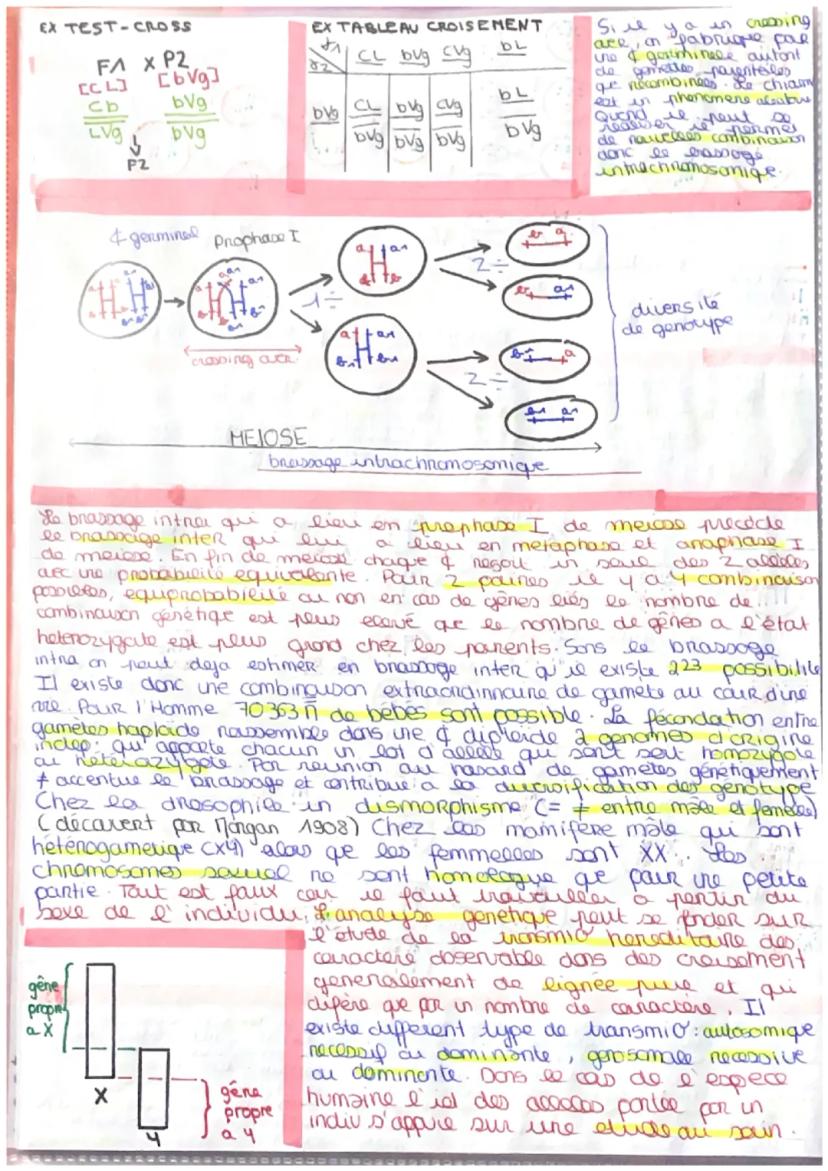 EX TEST-CROSS
F1 X P2
[CL] [bVg]
Cb bVg
LVg bVg
F2
EX TABLEAU CROISEMENT
γ1
γ2
CL bVg CVg bL
bVg CL bVg CVg bL
bVg bVg bVg bVg
Si il y a un crossing
over, on fabrique par
une ¢ germinale autant
de gamètes parentales
que recombinées. Le chiasma
est un phenomene aleatoire
Quand il peut se
realiser il permet
de nouvelles combinaison
donc le brassage
intrachromosomique.
¢ germinal Prophase I
crossing over
1 ÷
2 ÷
2 ÷
diversité
de genotype
MEIOSE
brassage intrachromosomique
Le brassage intra qui a lieu en prophase I de meiose precède
le brassage inter qui lui a lieu en metaphase et anaphase I
de meiose. En fin de meiose chaque ¢ reçoit un seul des 2 alleles
avec une probabilité equivalente. Pour 2 paires il y a 4 combinaison
possibles, equiprobabilité ou non en cas de gênes liés le nombre de
combinaison génétique est plus elevé que le nombre de gênes a l'état
heterozygote est plus grand chez les parents. Sans le brassage
intra on peut deja estimer en brassage inter qu'il existe 223 possibilité
Il existe donc une combinaison extraordinnaire de gamete au cour d'une
vie. Pour l'Homme 70363 de bébés sont possible. La fécondation entre
gamètes haploide rassemble dans une ¢ diploide 2 genomes d'origine
indep: qui apporte chacun un lot d'allele qui sont soit homozygote
ou heterozygote. Par reunion au hasard de gamètes génétiquement
≠ accentue le brassage et contribue a la diversification des genotype
Chez la drosophile un dismorphisme (= ≠ entre mâle et femelle)
(découvert par Morgan 1908) Chez les mamifère mâle qui sont
hétérogametique (XY) alors que les femmelles sont XX. Les
chromosomes sexuel ne sont homologue que pour une petite
partie. Tout est faux car il faut travailler a partir du
sexe de l'individu. L'analyse genetique peut se fonder sur
l'étude de la transmi° hereditaire des
caractère observable dans des croisement
generalement de lignée pure et qui
difère que par un nombre de caractère. Il
existe different type de transmi°: autosomique
recessif ou dominante, gonosomale recessive
ou dominente. Dans le cas de l'espece
humaine l'id des alleles portée par un
indiv s'appuie sur une etude au sein.
gêne
propre
a X
X
Y
gêne
propre
a Y